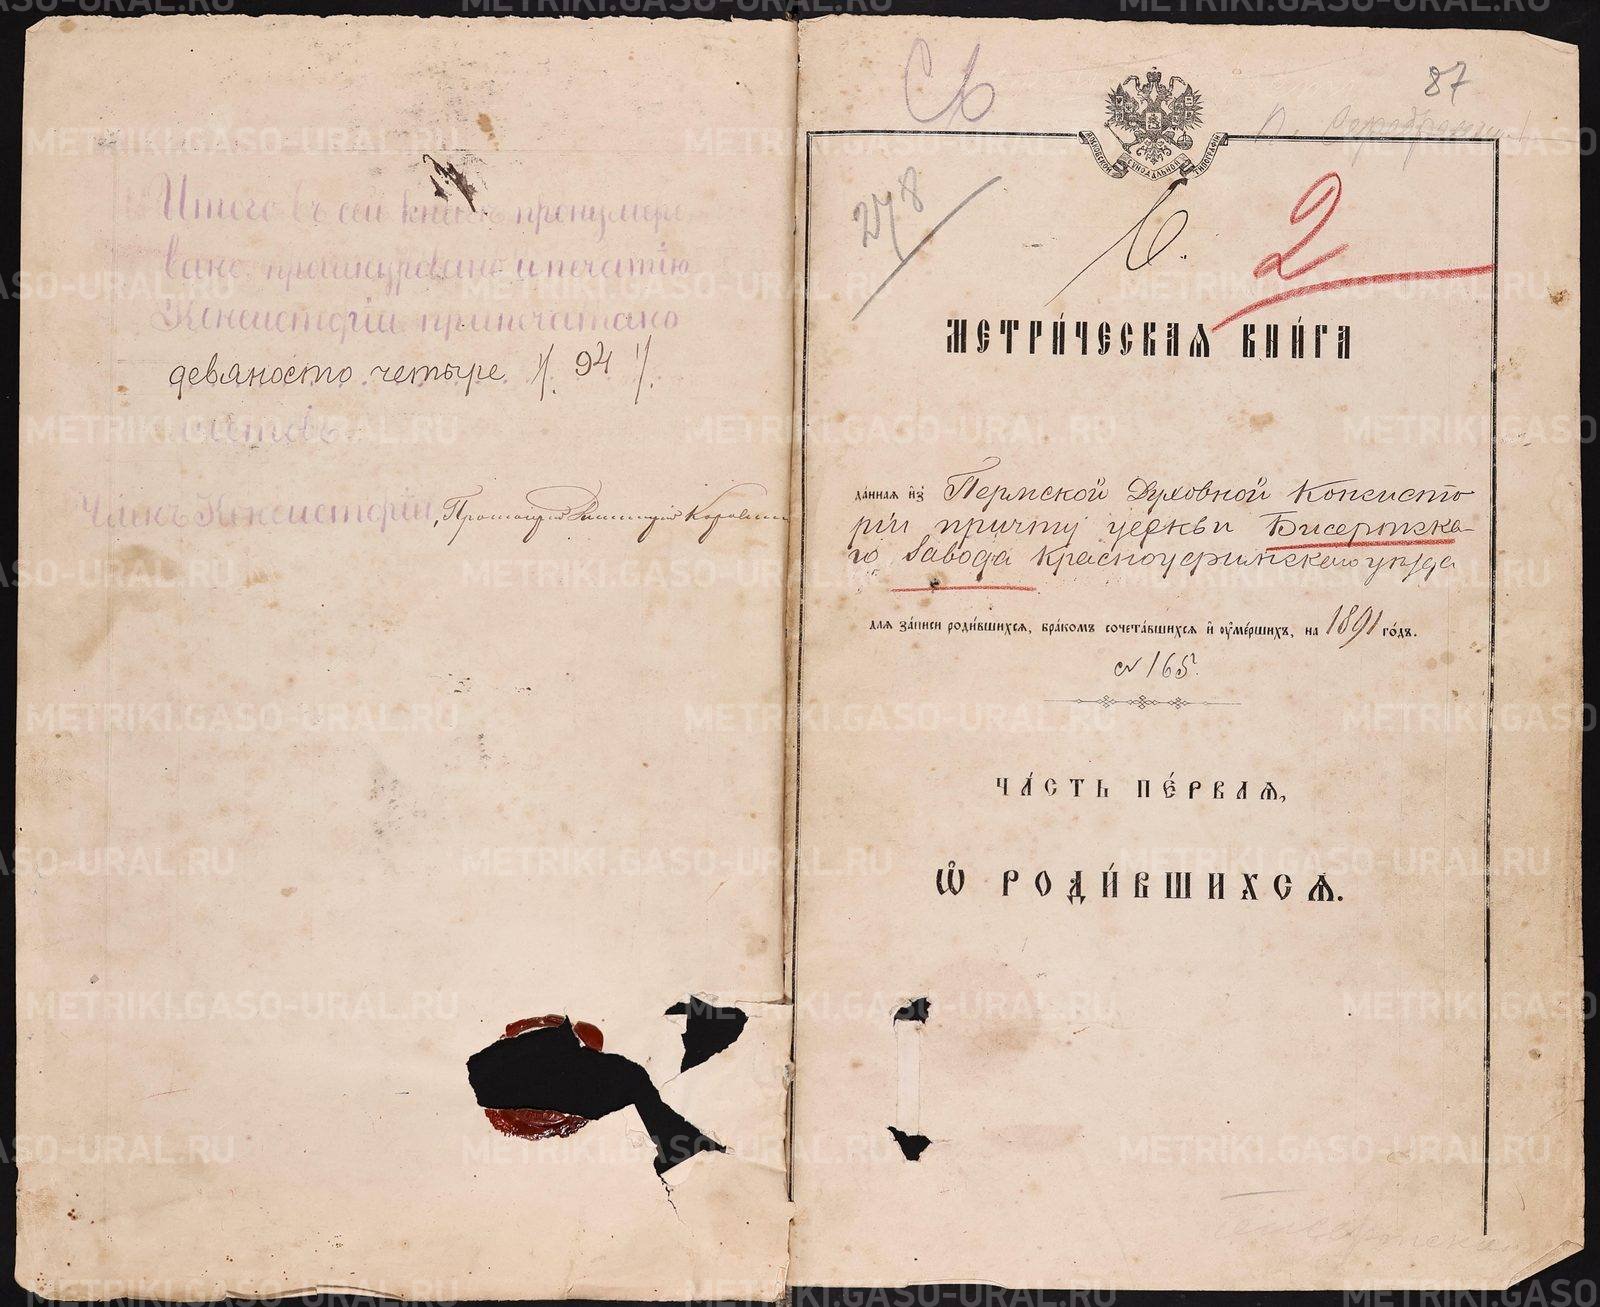 Итого въ сей книгѣ пронумеро
вано, прошнуровано и печатію
Консисторіи припечатано
девяносто четыре /. 94 /.
листовъ.
Членъ Консисторіи, Протоіерей
Св
87
МОСКОВСКОЙ СѴНОДАЛЬНОЙ ТИПОГРАФІИ
278
6.
2
МЕТРИ́ЧЕСКАѦ КНИ́ГА
да́ннаѧ и҆з̾ Пермской Духовной Консисто
ріи причту церкви Бисертска-
го Завода Красноуфимскаго уѣзда
длѧ за́писи роди́вшихсѧ, бра́комъ сочета́вшихсѧ и҆ ᲂу҆ме́ршихъ, на 1891 го́дъ.
№ 165.
ЧА́СТЬ ПЕ́РВАѦ,
Ѽ РОДИ́ВШИХСѦ.
METRIKI.GASO-URAL.RU